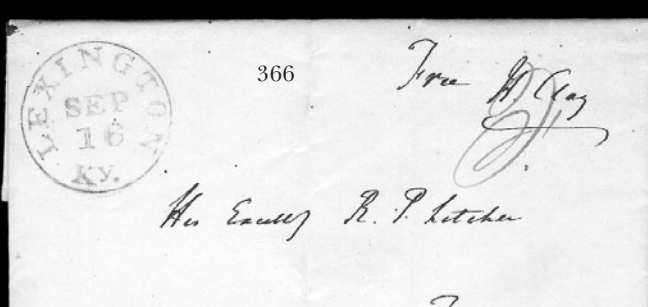 LEXINGTON
SEP
16
KY.
366
Free H Clay
His Excelly R. P. Letcher